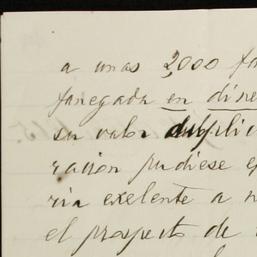 a unas 2,000 fa
fanegada en dine
su valor dupli
ración pudiese e
ria exelente a n
el prospecto de